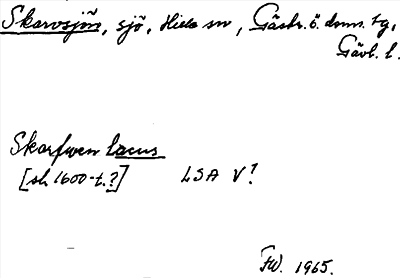 Skarvsjön, sjö, Hille sn, Gästr. ö. doms. tg,
Gävl. l.
Skarfwen lacus
[sl. 1600-t.?] LSA V?
FW. 1965.